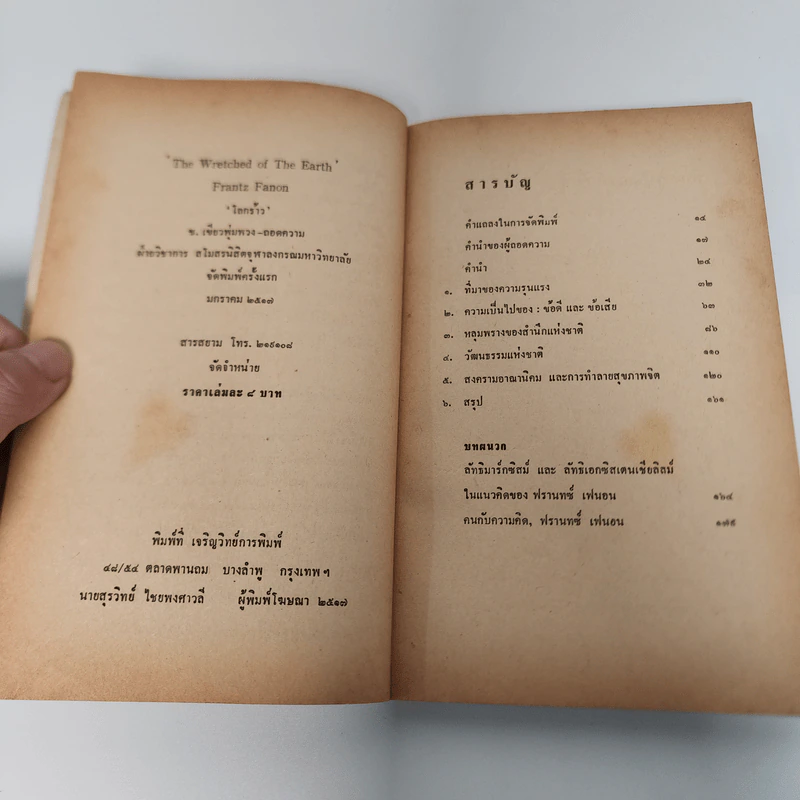 'The Wretched of The Earth'
Frantz Fanon
'โลกร้าว'
ข. เขียวพุ่มพวง-ถอดความ
ฝ่ายวิชาการ สโมสรนิสิตจุฬาลงกรณมหาวิทยาลัย
จัดพิมพ์ครั้งแรก
มกราคม ๒๕๑๗
สารสยาม โทร. ๒๑๙๑๐๘
จัดจำหน่าย
ราคาเล่มละ ๘ บาท
พิมพ์ที่ เจริญวิทย์การพิมพ์
๔๘/๕๔ ตลาดพานถม บางลำพู กรุงเทพฯ
นายสุรวิทย์ ไชยพงศาวลี ผู้พิมพ์โฆษณา ๒๕๑๗
สารบัญ
คำแถลงในการจัดพิมพ์ ๑๕
คำนำของผู้ถอดความ ๑๗
คำนำ ๒๔
๑. ที่มาของความรุนแรง ๓๒
๒. ความเป็นไปของ : ข้อดี และ ข้อเสีย ๖๓
๓. หลุมพรางของสำนึกแห่งชาติ ๘๖
๔. วัฒนธรรมแห่งชาติ ๑๑๐
๕. สงครามอาณานิคม และการทำลายสุขภาพจิต ๑๒๐
๖. สรุป ๑๖๑
บทผนวก
ลัทธิมาร์กซิสม์ และ ลัทธิเอกซิสเตนเชียลิสม์
ในแนวคิดของ ฟรานทซ์ เฟนอน ๑๖๔
คนกับความคิด, ฟรานทซ์ เฟนอน ๑๗๕